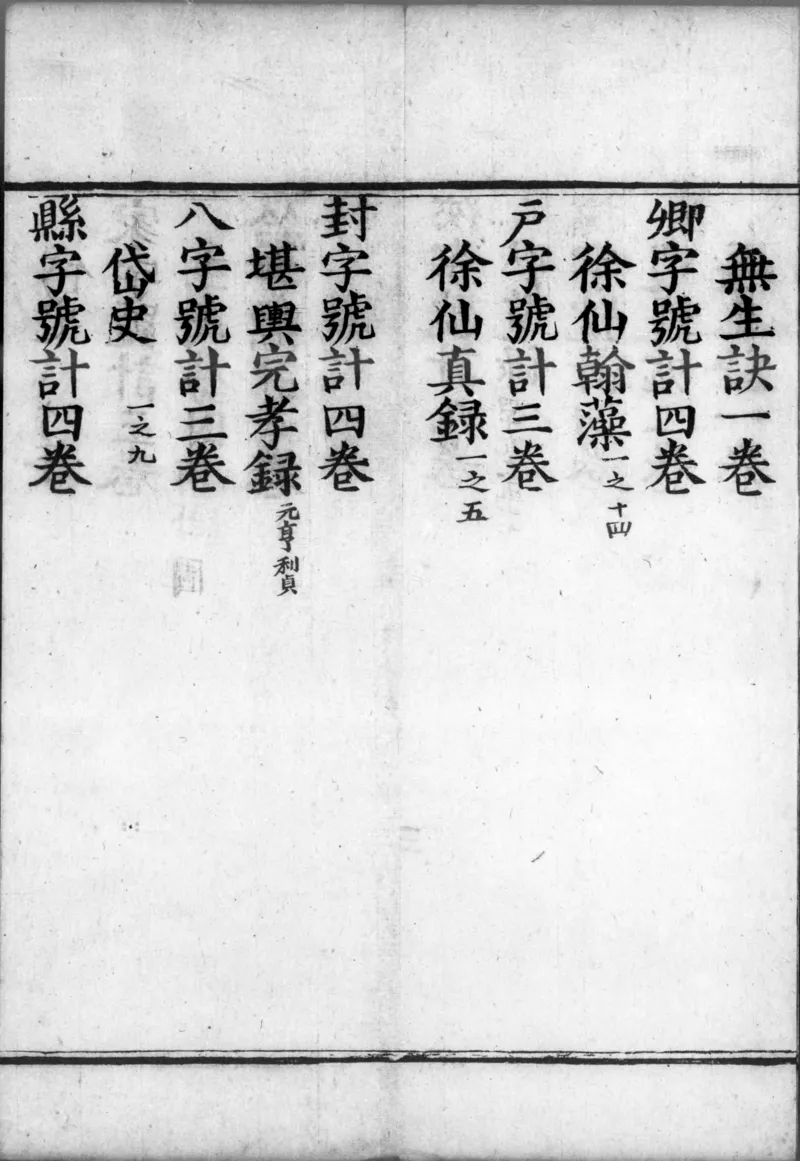 無生訣一卷
卿字號計四卷
徐仙翰藻一之十四
戶字號計三卷
徐仙真録一之五
封字號計四卷
堪輿完孝録元亨利貞
八字號計三卷
岱史一之九
縣字號計四卷